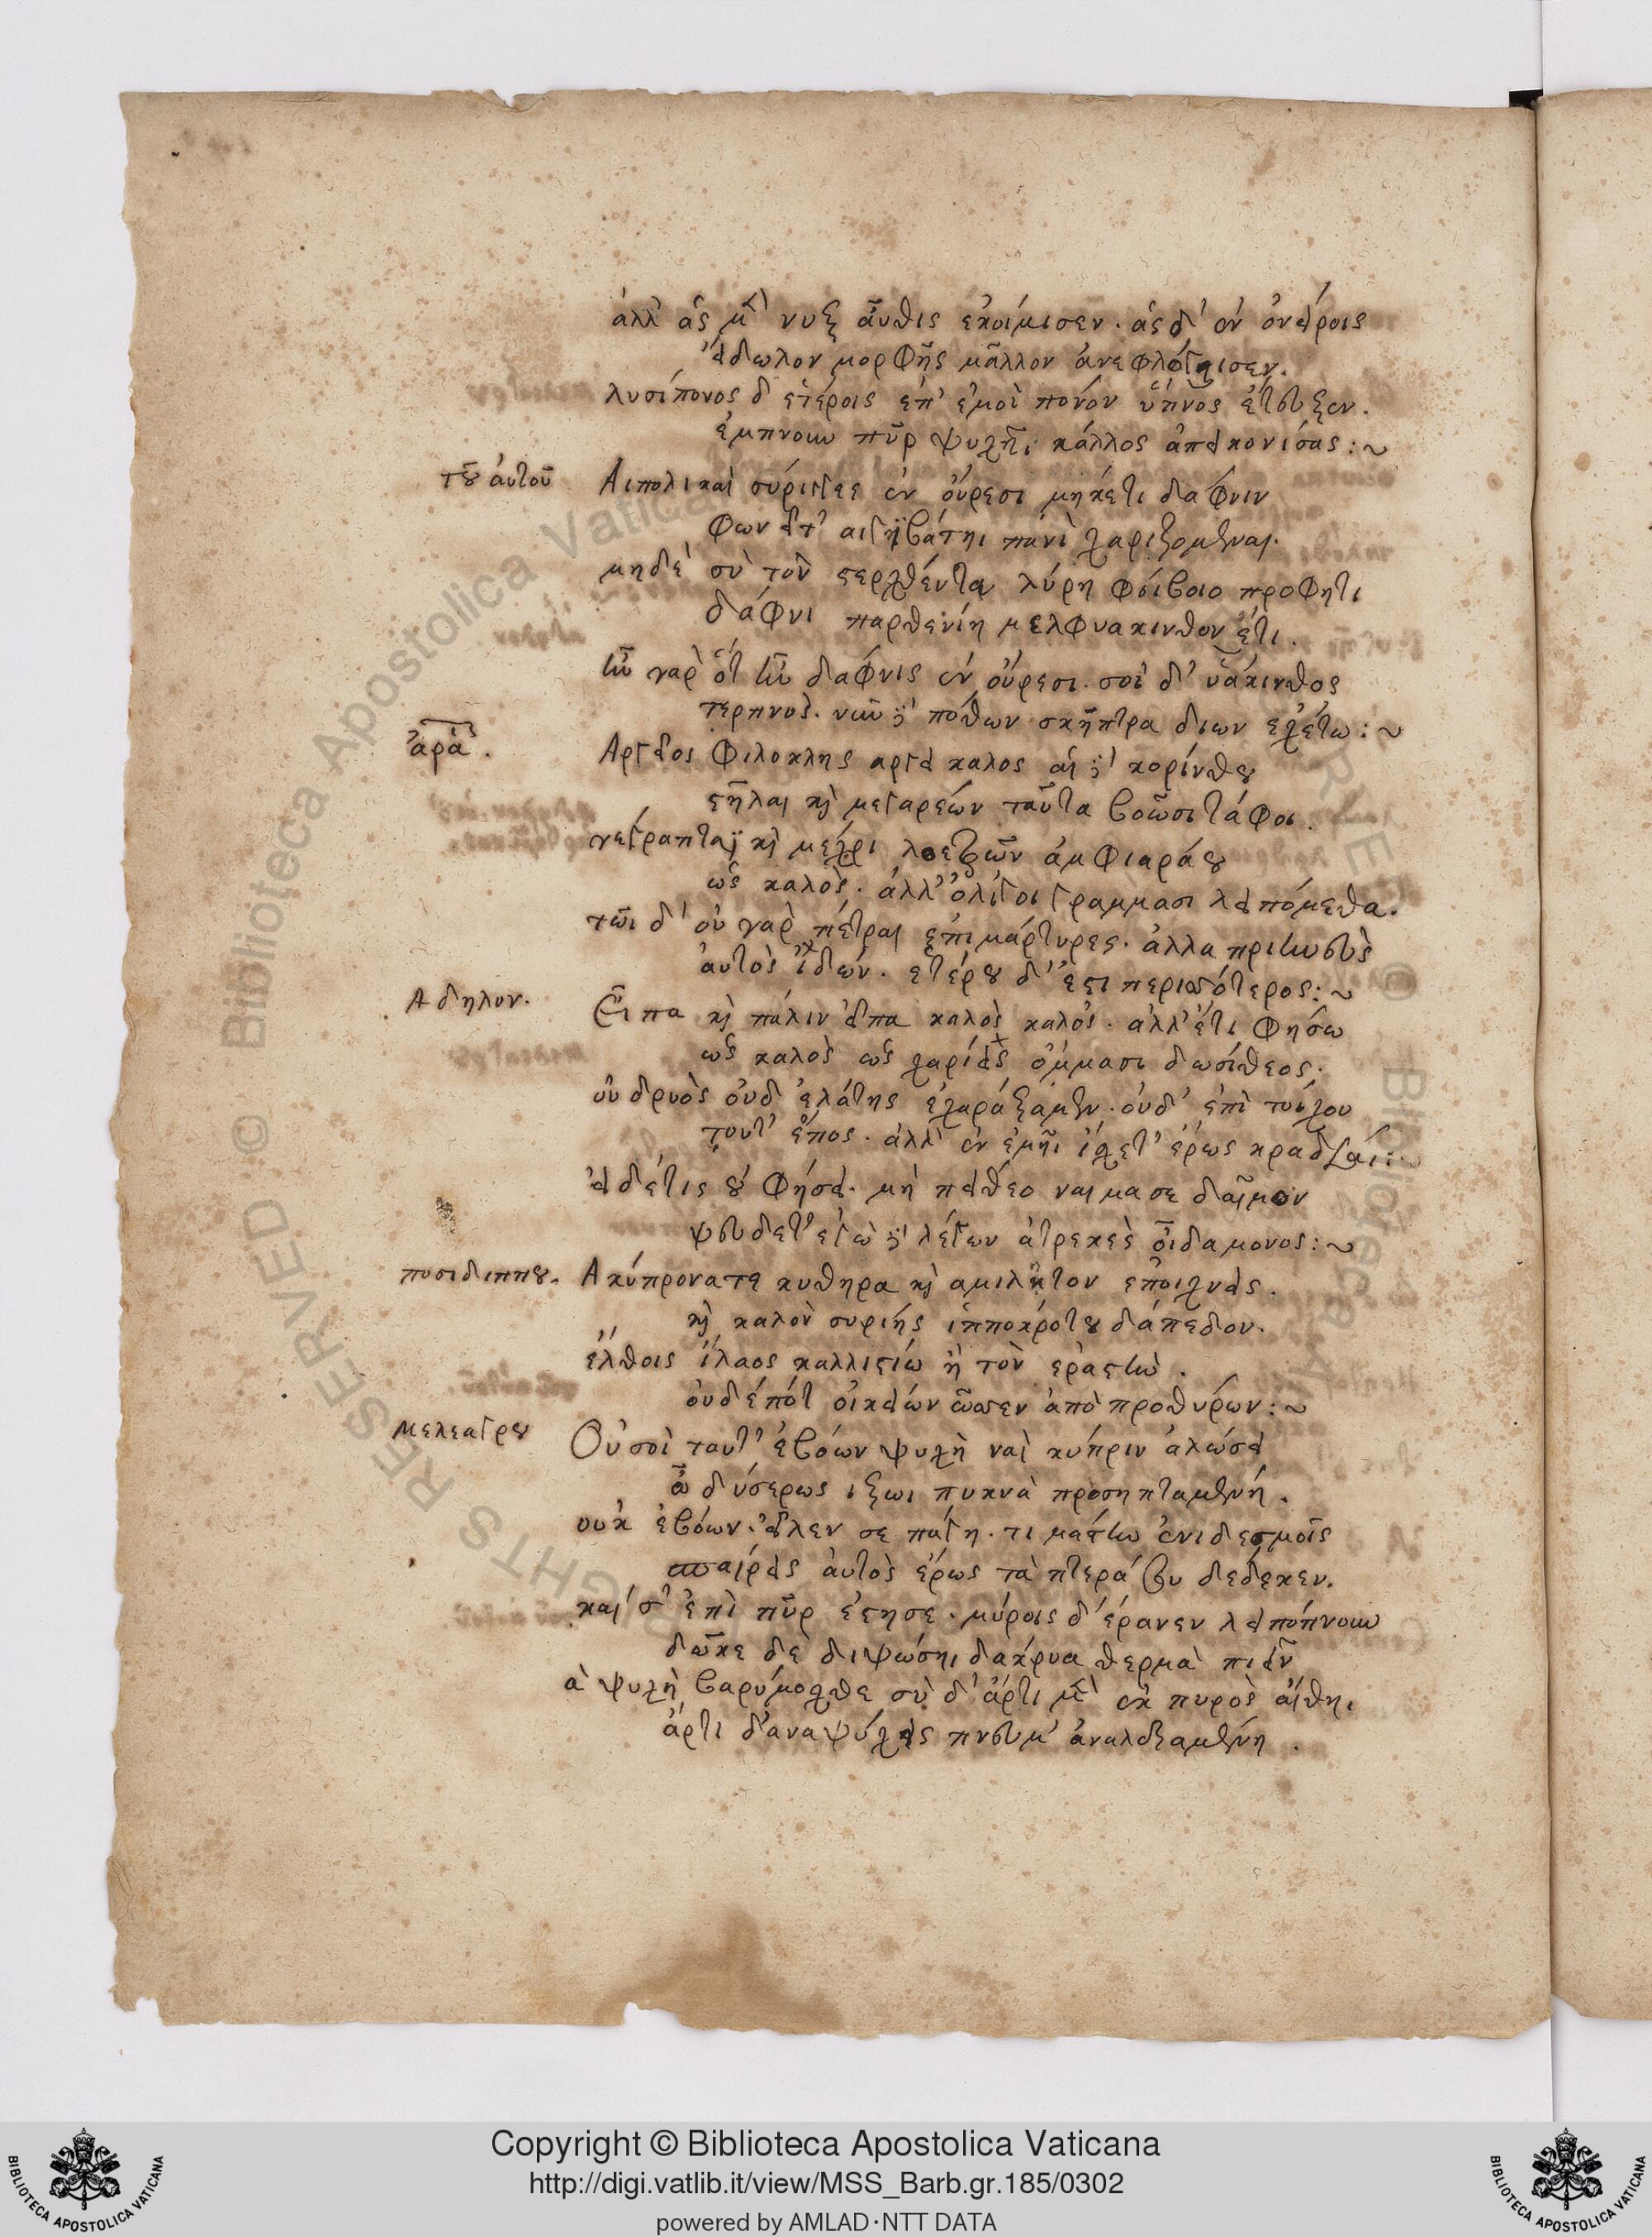 ἀλλ' ἁς μὲν νυξ ἆυθις εκοίμισεν. ἁς δ' ἐν ὀνείροις
ἔιδωλον μορφῆς μᾶλλον ἀνεφλόγισεν.
λυσίπονος δ' ετέροις επ' εμοὶ πόνον ὕπνος ἔτευξεν.
ἐμπνουν πῦρ ψυχῆι κάλλος ἀπεικονίσας:~
τοῦ ἀυτοῦ Αιπολικαὶ σύριγγες ἐν όυρεσι μηκέτι δάφνιν
φωνεῖτ' αιγιβάτηι πάνι χαριζομεναι.
μηδέ σὺ τον στερχθέντα λύρη φοίβοιο προφητι
δάφνι παρθενίη μελφυακινθον έτι.
ἦν γαρ ὅτ' ἦν δαφνις ἐν όυρεσι. σοί δ' ὑάκινθος
τερπνος. νῦν δὲ πόθων σκῆπτρα διων εχέτω:~
ἀρά. Αργεῖος φιλοκλης αργει καλος αἱ δὲ κορίνθου
στῆλαι καὶ μεγαρέων ταῦτα βοῶσι τάφοι.
γέγραπται καὶ μέχρι λοετρῶν ἀμφιαράου
ὡς καλὸς. ἀλλ' ὀλίγοι γραμμασι λειπόμεθα.
τῶι δ' οὐ γαρ πέτραι επιμάρτυρες. ἀλλα πριηνεὺς
ἀυτὸς ἰδών. ετέρου δ' έστι περισσότερος:~
Αδηλον. Εἶπα καὶ πάλιν εἶπα καλὸς καλός. αλλ' έτι φησω
ὡς καλὸς ὡς χαρίεις όμμασι δωσίθεος.
οὐ δρυὸς ουδ' ελάτης εχαράξαμεν. ουδ' επὶ τοίχου
τουτ' έπος. ἀλλ' ἐν εμῆι ίσχετ' έρως κραδίαι:
ει δέ τις ού φήσει. μὴ πείθεο ναι μα σε δαῖμον
ψεύδετ' εγὼ δὲ λέγων ἀτρεκὲς οἶδα μονος:~
ποσιδιππου. Α κύπρον ατε κυθηρα καὶ αμιλητον εποιχνεις.
καὶ καλὸν συρίης ἱπποκρότου δάπεδον.
έλθοις ίλαος καλλιστίω ἣ τὸν εραστὴν.
ουδέποτ' οικείων ὦσεν απὸ προθύρων:~
Μελεαγρου Ού σοὶ ταυτ' ἐβόων ψυχὴ ναὶ κύπριν ἁλώσει
ὦ δύσερως ιξωι πυκνὰ προσηπταμένη.
ουκ ἐβόων. εἷλεν σε παγη. τι μάτην ἐνι δεσμοῖς
σπαίρεις ἀυτὸς έρως τὰ πτερά ευ δεδεκεν.
καί σ' ἐπὶ πῦρ έστησε. μύροις δ' έρανεν λειπόπνουν
δῶκε δὲ διψώσηι δακρυα θερμὰ πιεῖν
ἁ ψυχὴ βαρύμοχθε σὺ δ' άρτι μὲν ἐκ πυρὸς αίθηι
άρτι δ' αναψύχεις πνευμ' ἀναλεξαμένη.
Copyright © Biblioteca Apostolica Vaticana
http://digi.vatlib.it/view/MSS_Barb.gr.185/0302
powered by AMLAD·NTT DATA